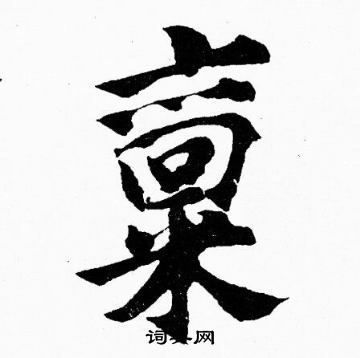 稟
词典网